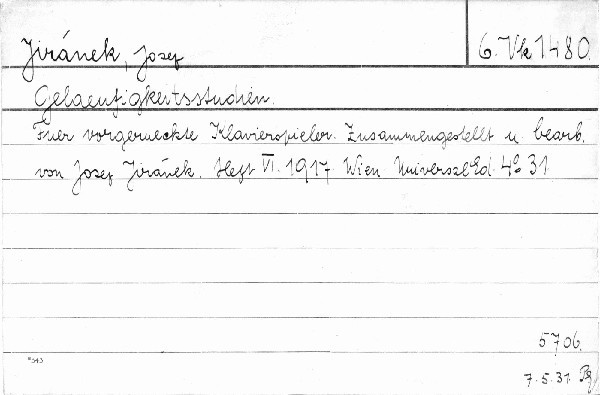 Jiránek, Josef
6. Vk 1480.
Gelaeufigkeitsstudien.
Fuer vorgerueckte Klavierspieler. Zusammengestellt u. bearb.
von Josef Jiránek. Heft VI. 1917 Wien Universal Ed. 4° 31
5706.
*343
7.5.31.